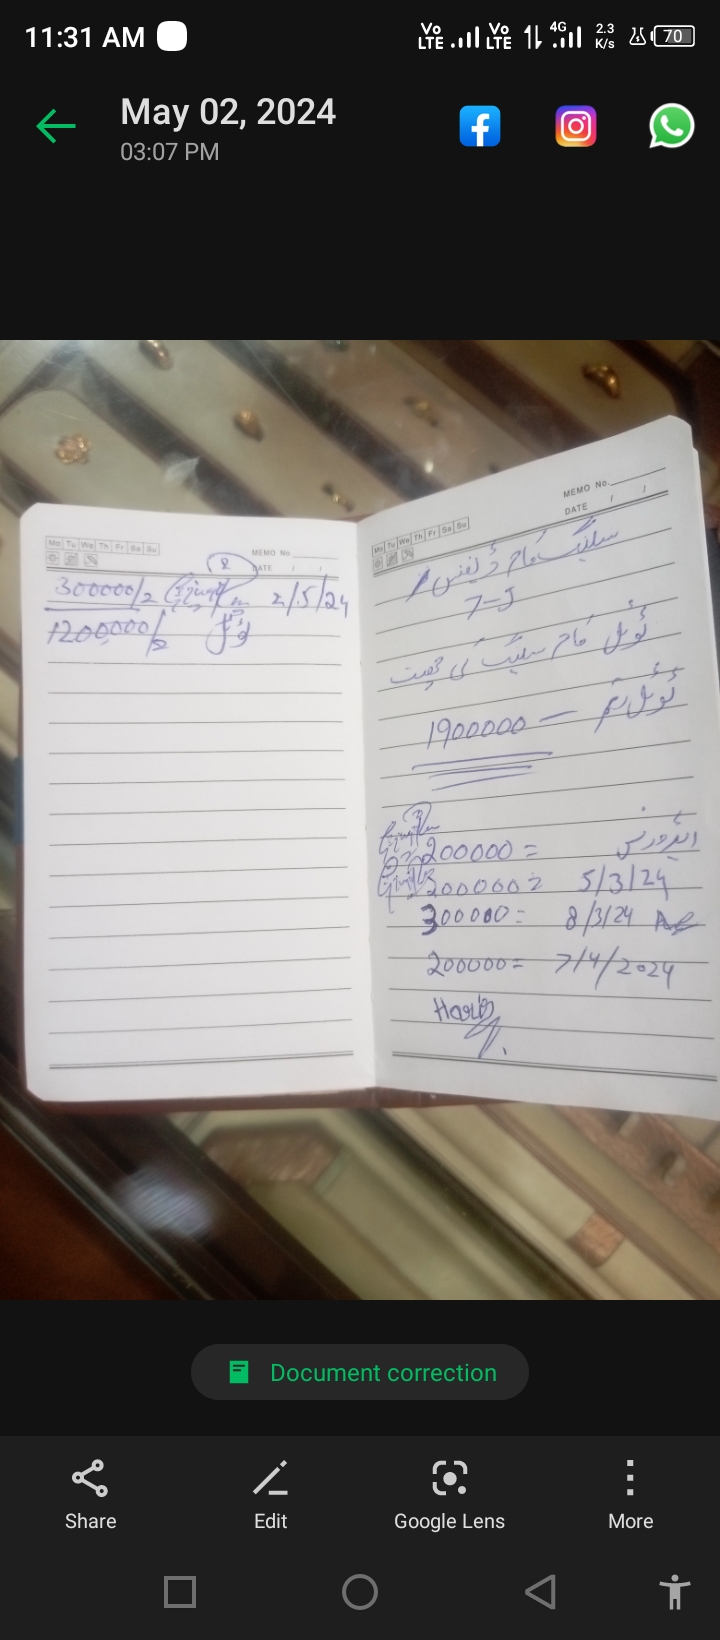 11:31 AM
Vo LTE Vo LTE 4G 2.3 K/s 70
May 02, 2024
03:07 PM
Mo Tu We Th Fr Sa Su
MEMO No.
DATE / /
2
300000/= 2/5/24
1200,000/= ٹوٹل
Mo Tu We Th Fr Sa Su
MEMO No.
DATE / /
سیلنگ کام ڈیفنس
7-J
ٹوٹل کام سیلنگ کی چھت
ٹوٹل رقم — 1900000
ایڈوانس 200000 =
200000 = 5/3/24
300000 = 8/3/24
200000 = 7/4/2024
Haris
Document correction
Share
Edit
Google Lens
More